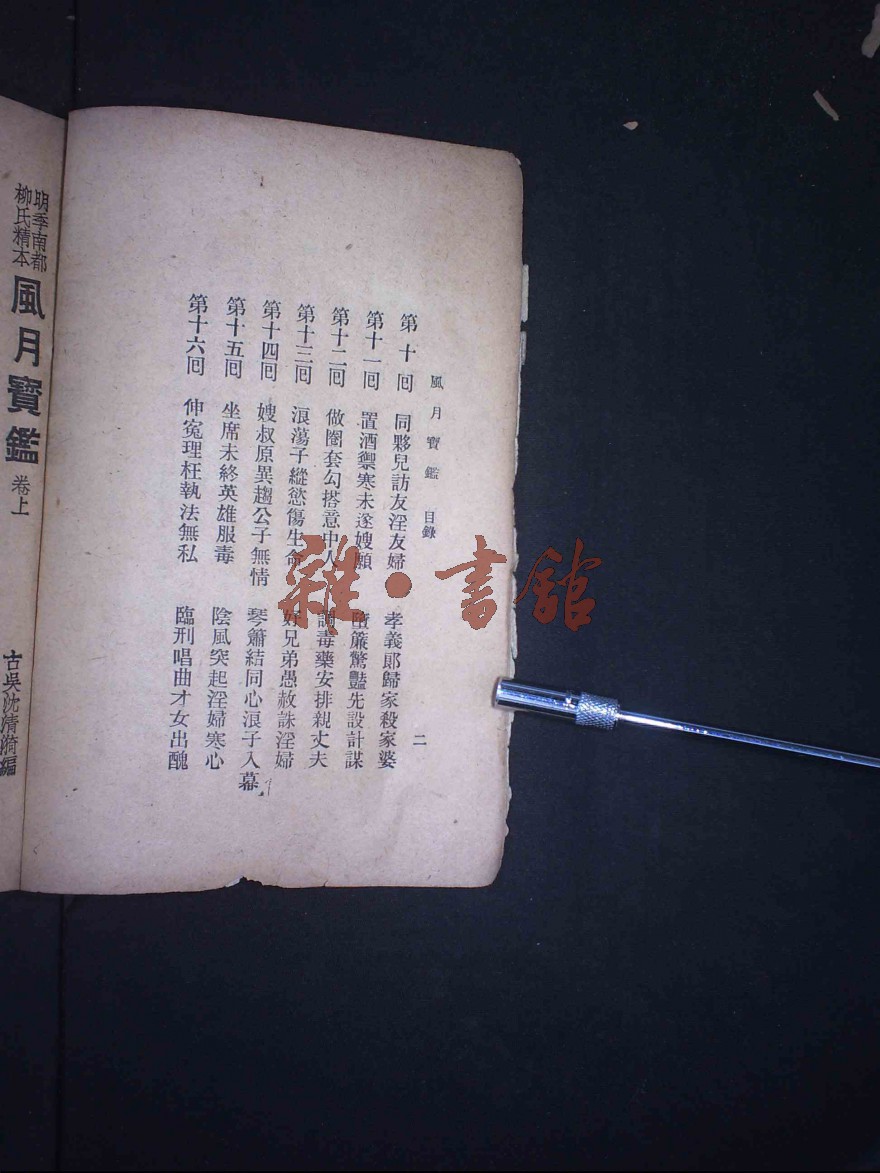 風月寶鑑 目錄 二
第十回 同夥兒訪友淫友婦 孝義郞歸家殺家婆
第十一回 置酒禦寒未遂嫂願 墮簾驚豔先設計謀
第十二回 做圈套勾搭意中人 調毒藥安排親丈夫
第十三回 浪蕩子縱慾傷生命 好兄弟愚赦誅淫婦
第十四回 嫂叔原異趨公子無情 琴簫結同心浪子入幕
第十五回 坐席未終英雄服毒 陰風突起淫婦寒心
第十六回 伸寃理枉執法無私 臨刑唱曲才女出醜
明季南都
柳氏精本
風月寶鑑 卷上
古吳沈淸漪編
雜·書館